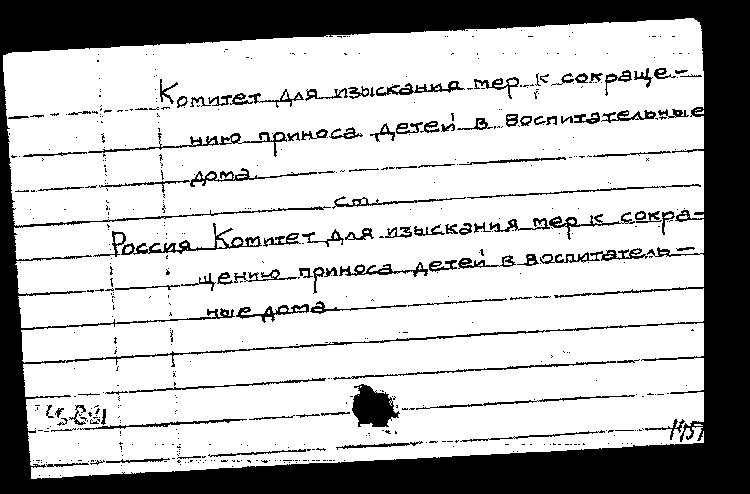 Комитет для изыскания мер к сокраще-
нию приноса детей в воспитательные
дома.
см.
Россия Комитет для изыскания мер к сокра-
щению приноса детей в воспитатель-
ные дома.